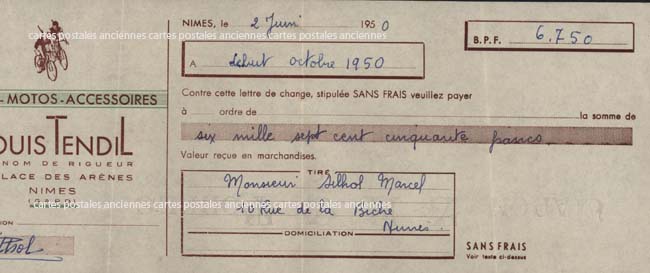 NIMES, le 2 Juin 1950
cartes postales anciennes cartes postales anciennes cartes postales anciennes cartes postales anciennes
B.P.F. 6.750
A début octobre 1950
- MOTOS - ACCESSOIRES
Contre cette lettre de change, stipulée SANS FRAIS veuillez payer
à ordre de la somme de
OUIS TENDIL
six mille sept cent cinquante francs
NOM DE RIGUEUR
Valeur reçue en marchandises.
LACE DES ARÈNES
NIMES
TIRÉ
Monsieur Silhol Marcel
cartes postales anciennes cartes postales anciennes cartes postales anciennes cartes postales anciennes
10 Rue de la Biche
Nimes
DOMICILIATION
SANS FRAIS
Voir texte ci-dessus